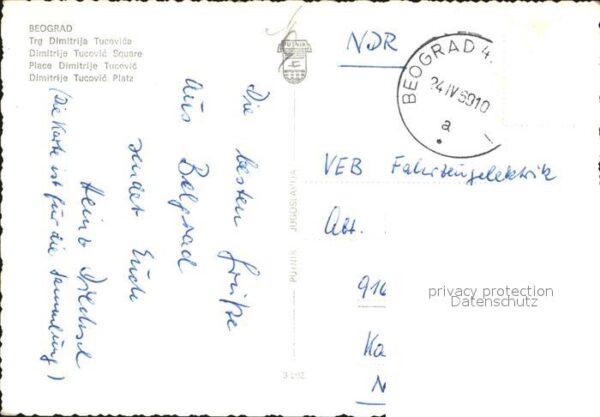 BEOGRAD
Trg Dimitrija Tucovića
Dimitrije Tucović Square
Place Dimitrije Tucović
Dimitrije Tucović Platz
PUTNIK
NDR
BEOGRAD 4.
24 IV 69 10
a
Die besten Grüße
aus Belgrad
sendet Euch
Heinz
(Die Karte ist für die Sammlung)
PUTNIK JUGOSLAVIJA
VEB Fahrzeugelektrik
Abt.
Ka
N
privacy protection
Datenschutz